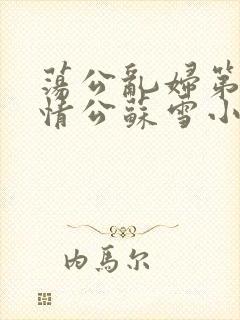 蕩公亂婦第
情公蘇雪小
内馬尔